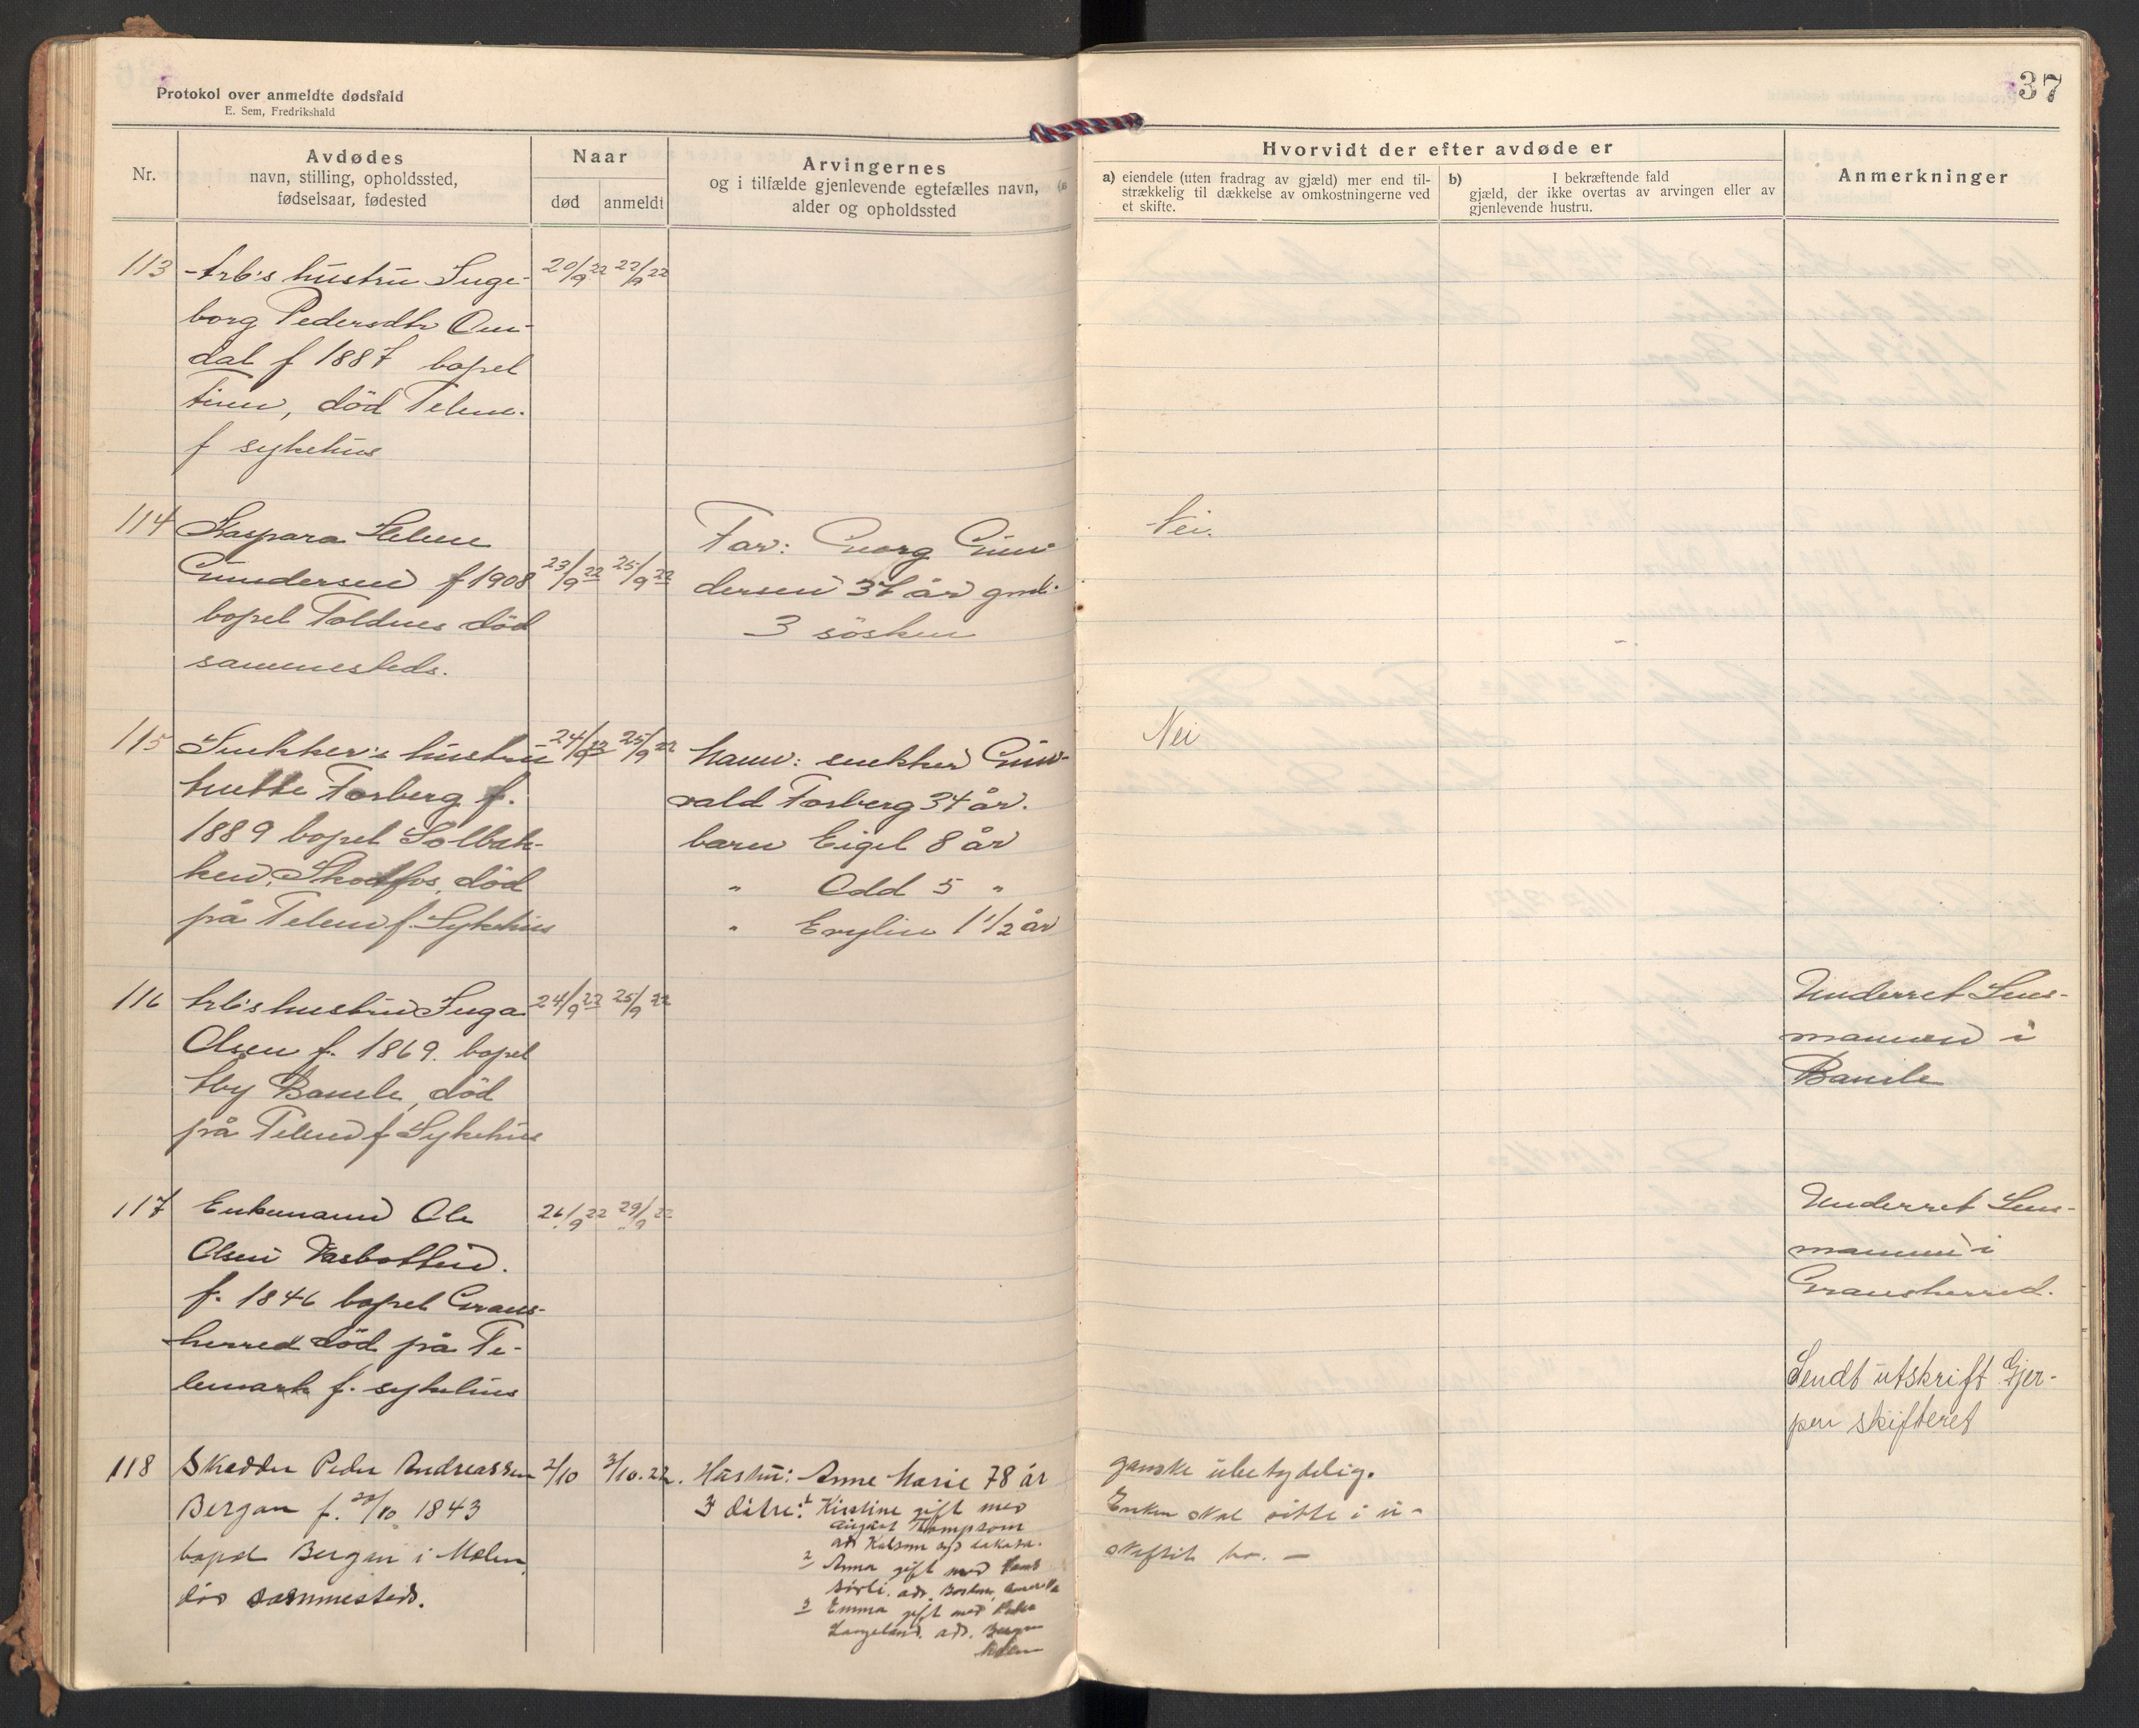 Protokol over anmeldte dødsfald
E. Sem, Fredrikshald
37
Nr.
Avdødes
navn, stilling, opholdssted,
fødselsaar, fødested
Naar
død
anmeldt
Arvingernes
og i tilfælde gjenlevende egtefælles navn,
alder og opholdssted
Hvorvidt der efter avdøde er
a) eiendele (uten fradrag av gjæld) mer end til-
strækkelig til dækkelse av omkostningerne ved
et skifte.
b) I bekræftende fald
gjæld, der ikke overtas av arvingen eller av
gjenlevende hustru.
Anmerkninger
113 Arb's hustru Inge- 20/9 22 22/9 22
borg Pedersdtr Om-
dal f 1887 bopel
Tinn, død Telem.
f sykehus
114 Kaspara Helene
Gundersen f 1908 23/9 22 25/9 22
bopel Toldnes död
sammesteds.
Far: Georg Gun-
dersen 37 år
3 sösken
Nei.
115 Snekker's hustru 24/9 22 25/9 22
Forberg f.
1889 bopel Solbak-
ken, Skotfos, död
på Telem f. Sykehus
Mann: snekker Gun-
vald Forberg 34 år.
barn Eigel 8 år
" Odd 5 "
" Evylin 1 1/2 år
Nei
116 Arb's hustru Inga 24/9 22 25/9 22
Olsen f. 1869. bopel
Åby Bamle, död
på Telem f Sykehus
Underret Lens-
manden i
Bamle
117 Enkemand Ole 26/9 22 29/9 22
Olsen Vasbotten.
f. 1846 bopel Grans-
herred död på Te-
lemark f. sykehus
Underret Lens-
mannen i
Gransherred.
Sendt utskrift Gjer-
pen skifteret
118 Skredder Peder Andreassen 2/10 3/10.22.
Bergan f. 20/10 1843
bopel Bergan i Melum,
död sammesteds.
Hustru: Anne Marie 78 år
3 dötre: 1 Kirstine gift med
August Thompson
2 Anna gift med
Sörli. adr. Boston, Amerika
3 Emma gift med Peder
Langeland. adr. Bergan
Melum
ganske ubetydelig.
Enken skal sitte i u-
skiftet bo. —